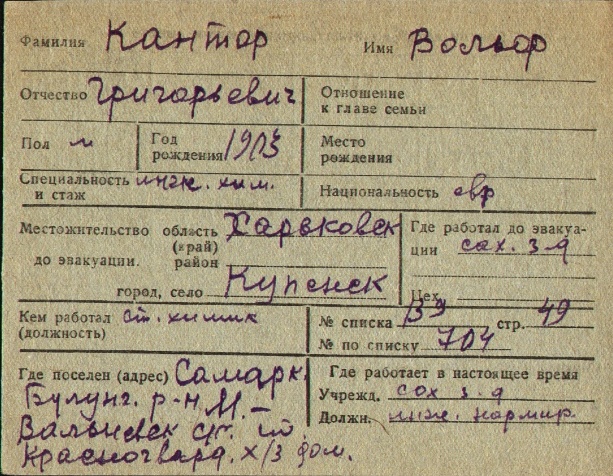 Фамилия Кантор Имя Вольф
Отчество Григорьевич Отношение
к главе семьи
Пол м Год
рождения 1903 Место
рождения
Специальность инж. хим.
и стаж Национальность евр
Местожительство область Харьковск Где работал до эвакуа-
(край) ции сах. з-д
до эвакуации. район
город, село Купенск Цех
Кем работал ст. химик № списка 139 стр. 49
(должность) № по списку 704
Где поселен (адрес) Самарк. Где работает в настоящее время
Булунг. р-н М.- Учрежд. сах з-д
Должн. инж. нормир.
Красногвард. х/з дом.